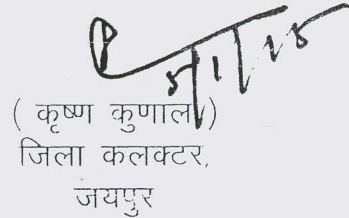 ( कृष्ण कुणाल )
जिला कलक्टर,
जयपुर